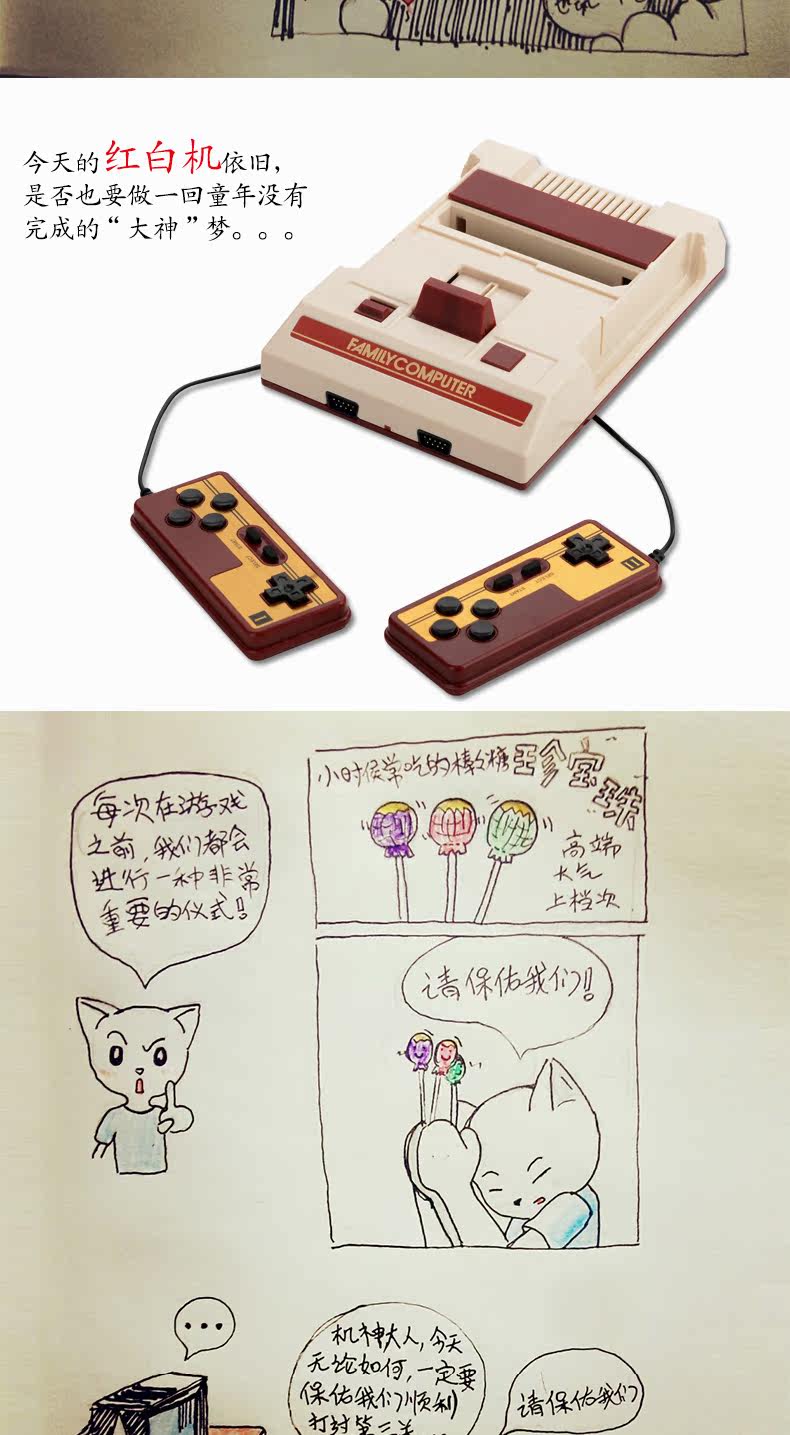 今天的红白机依旧,
是否也要做一回童年没有
完成的“大神”梦。。。
FAMILY COMPUTER
SELECT
START
II
SELECT
START
II
小时候常吃的棒糖
珍宝珠
高端
大气
上档次
每次在游戏
之前,我们都会
进行一种非常
重要的仪式!!
请保佑我们!!
...
机神大人,今天
无论如何,一定要
保佑我们顺利
打过第三关
请保佑我们